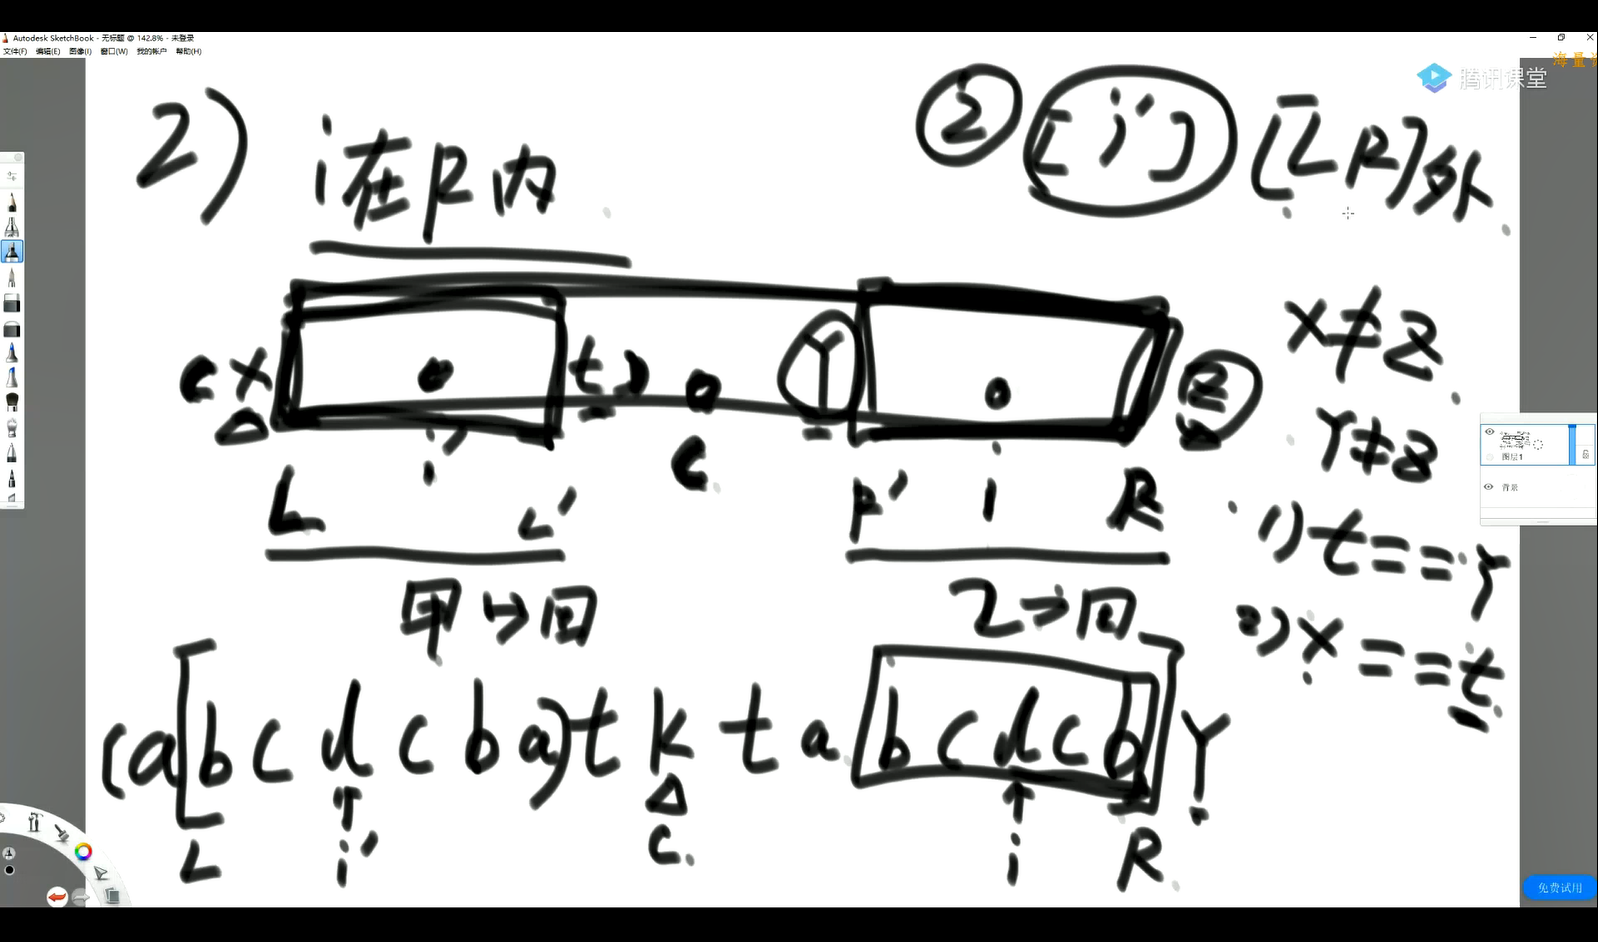 Autodesk SketchBook - 无标题 @ 142.8% - 未登录
文件(F) 编辑(E) 图像(I) 窗口(W) 我的帐户 帮助(H)
海量
腾讯课堂
2) i在R内
② [i'] [L R]外
( X t ) Y Z
X≠Z
Y≠Z
i' C
L L' R' i R
1) t==Y
甲→回 乙→回
2) X==t
(a[bcdcba)tkta[bcdcb]Y
i' C i R
L
图层1
背景
免费试用